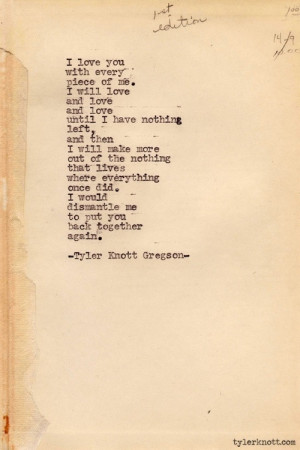 1st
edition
14/9
I love you
with every
piece of me.
I will love
and love
and love
until I have nothing
left,
and then
I will make more
out of the nothing
that lives
where everything
once did.
I would
dismantle me
to put you
back together
again.
-Tyler Knott Gregson-
tylerknott.com